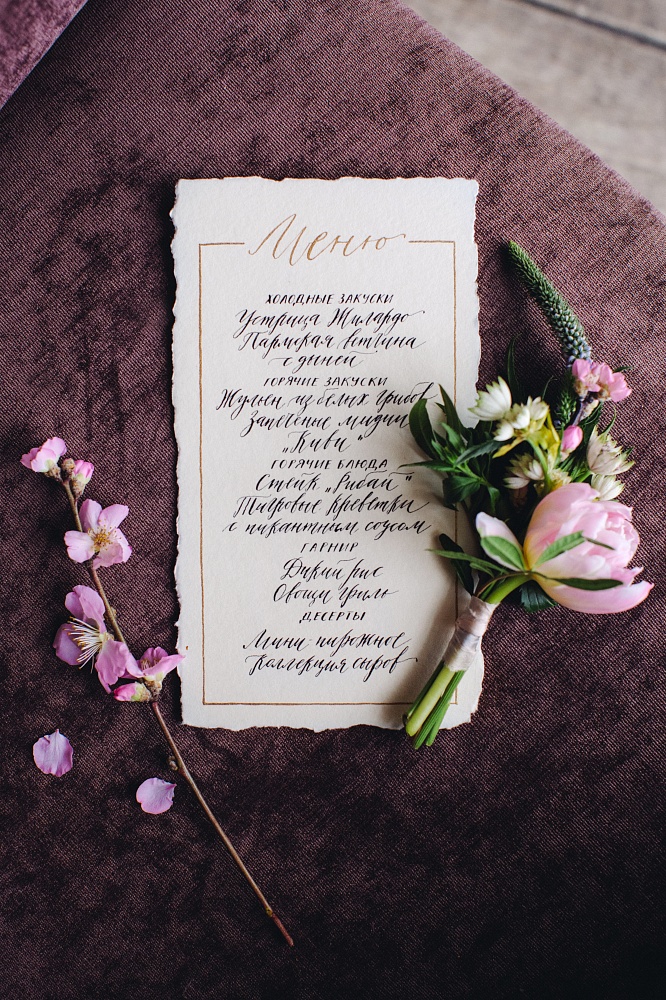 Меню
ХОЛОДНЫЕ ЗАКУСКИ
Устрица Жилардо
Пармская ветчина
с дыней
ГОРЯЧИЕ ЗАКУСКИ
Жульен из белих грибов
Запечёные мидии
„Киви“
ГОРЯЧИЕ БЛЮДА
Стейк „Рибай“
Тигровые креветки
с пикантным соусом
ГАРНИР
Дикий рис
Овощи гриль
ДЕСЕРТЫ
Мини-пирожное
Коллекция сыров